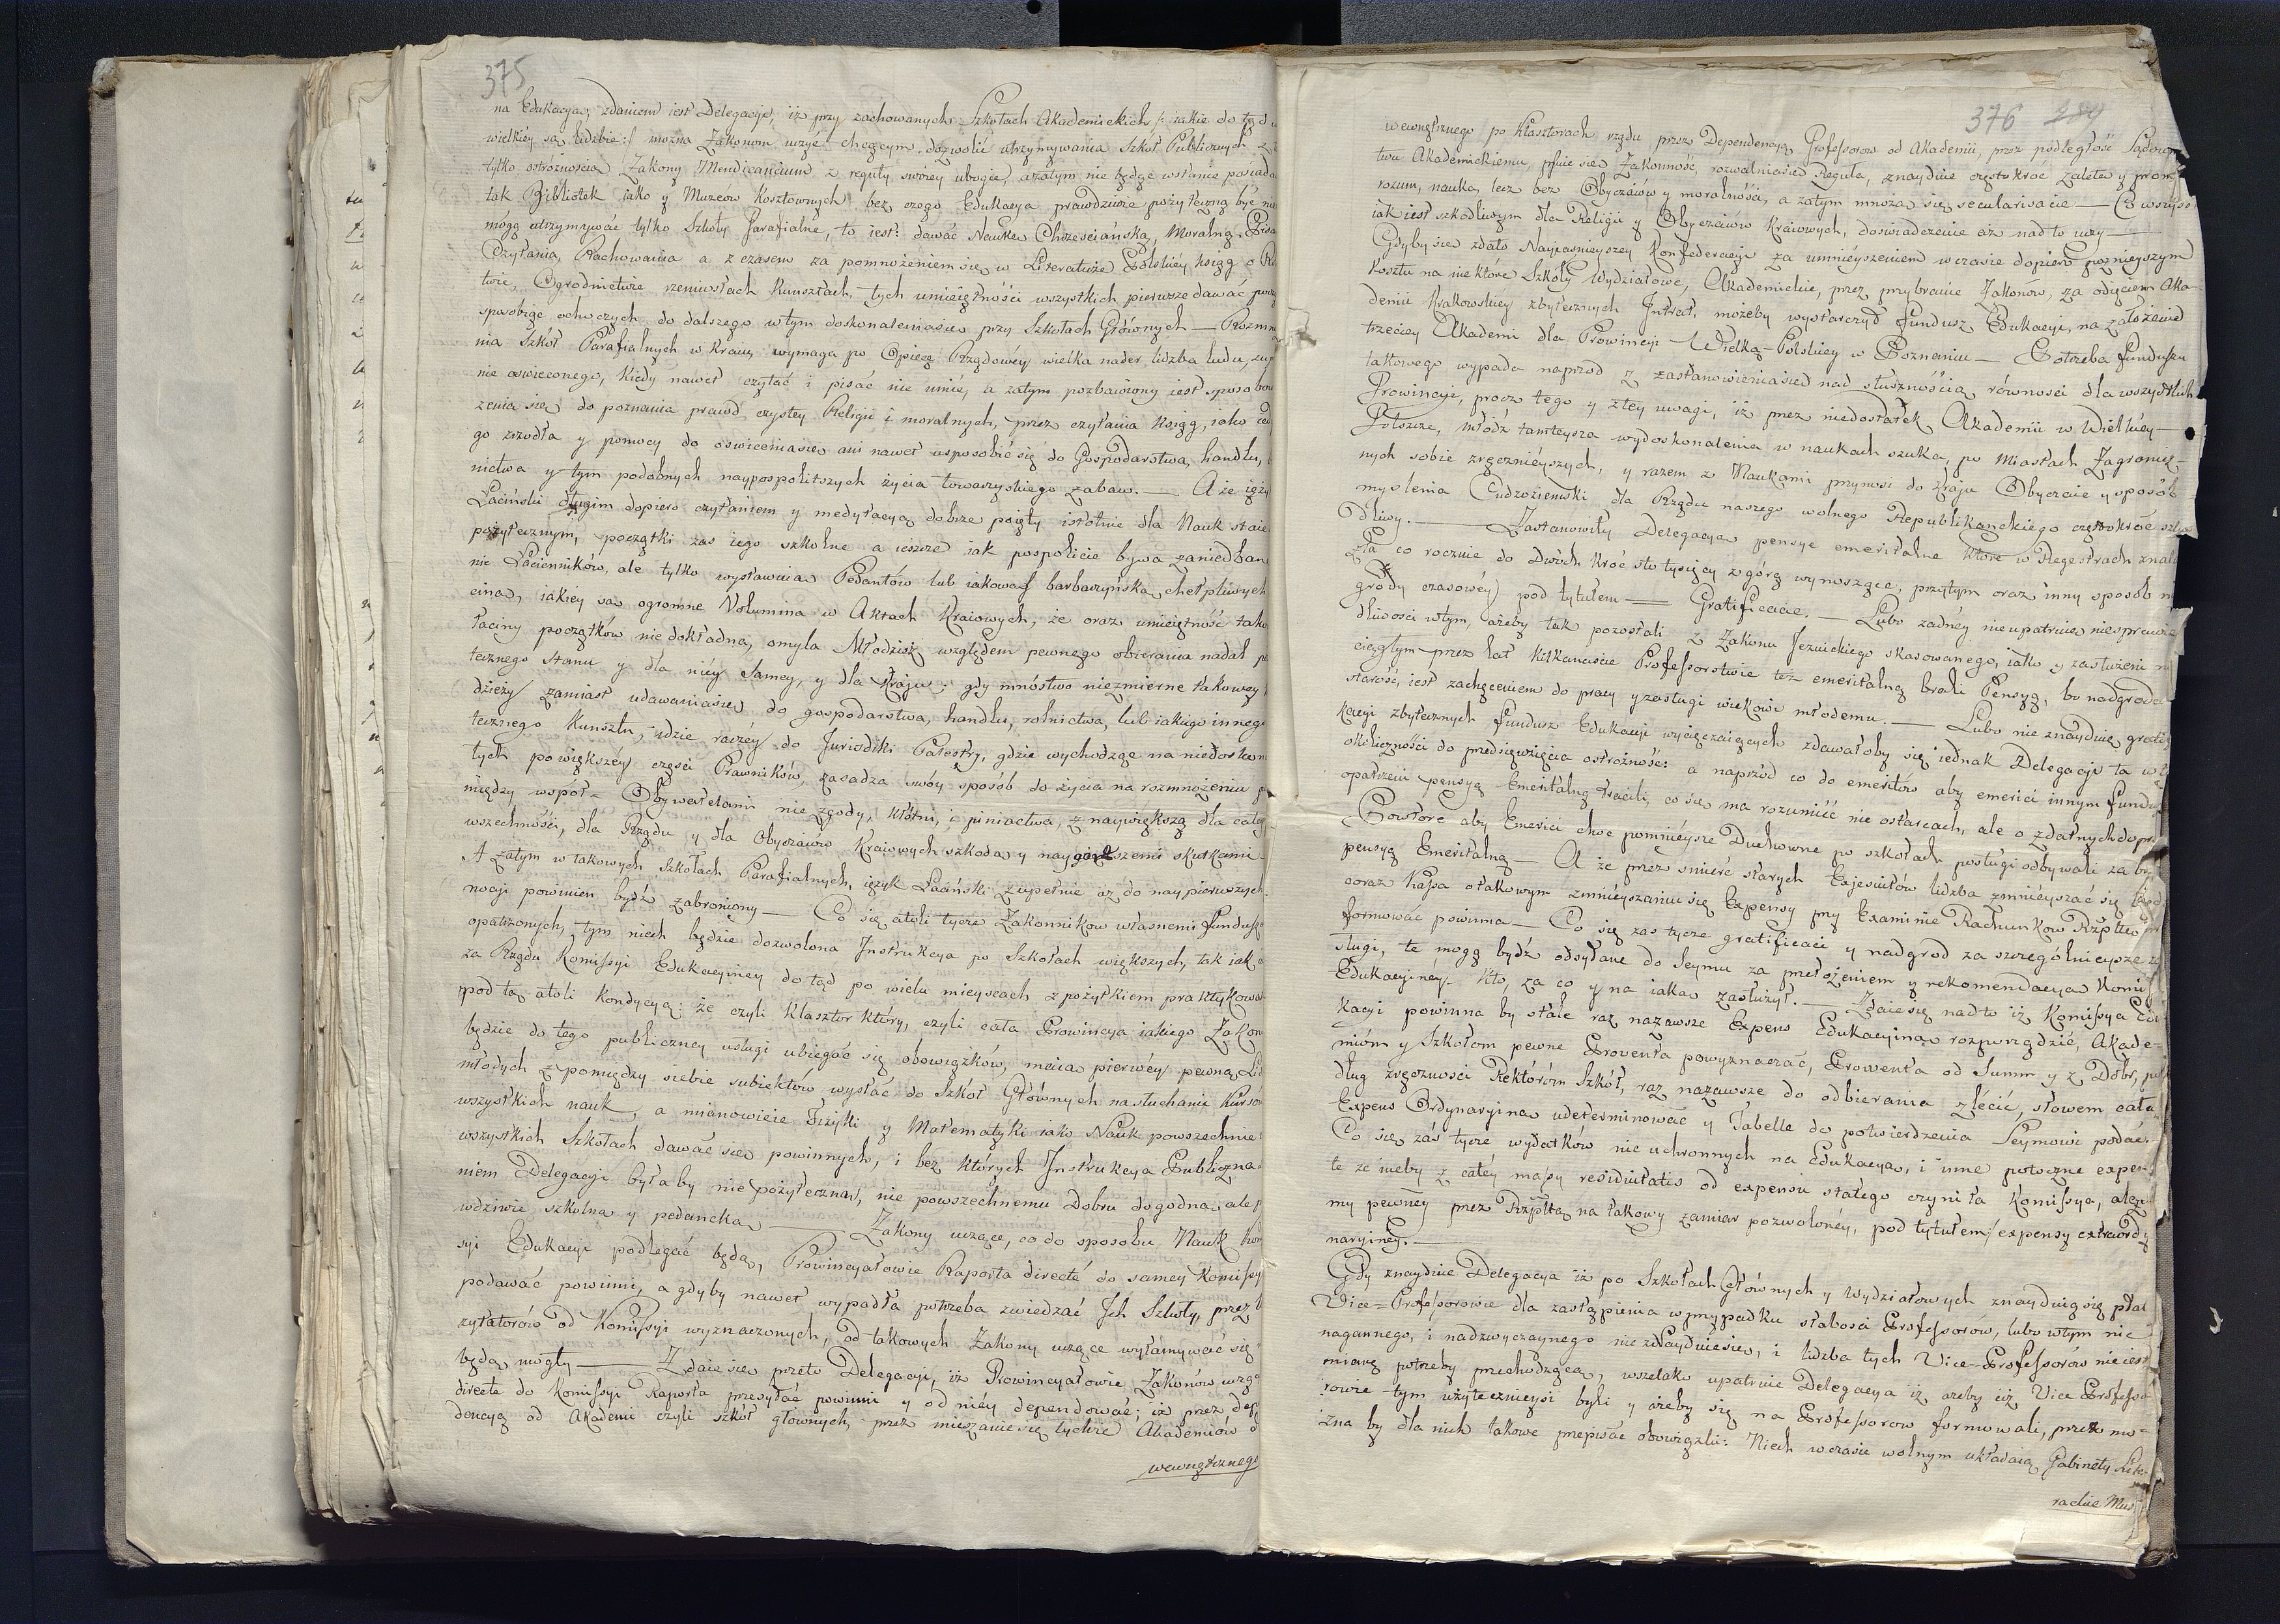 375
na Edukacyą, zdaniem iest Delegacyi, iż przy zachowanych Szkołach Akademickich /: iakie do tąd w
wielkiey są liczbie :/ można Zakonom uczyć chcącym dozwolić utrzymywania Szkół Publicznych z tą
tylko ostróżnością Zakony Mendicantium z reguły swoiey ubogie, a zatym nie będąc wstanie posiadać
tak Bibliotek iako y Muzeów Kosztownych bez czego Edukacya prawdziwie pożyteczną być nie
mogą utrzymywać tylko Szkoły Parafialne, to iest: dawać Naukę Chrześciańską, Moralną, Pisa
Czytania, Rachowania a z czasem za pomnożeniem się w Literaturze Polskiey ksiąg o Rol
twie, Ogrodnictwie rzemiosłach Kunsztach, tych umieiętności wszystkich pierwsze dawać począ
sposobiąc ochoczych do dalszego w tym doskonalenia się przy Szkołach Głównych — Rozmno
nia Szkół Parafialnych w Kraiu wymaga po Opiece Rządowéy wielka nader liczba ludu,
nie oświeconego, kiedy nawet czytać i pisać nie umie, a zatym pozbawiony iest sposobow
zenia się do poznania prawd czystey Religii i moralnych, przez czytania ksiąg, iako
go zrzodła y pomocy do oswicenia się ani nawet usposobić się do Gospodarstwa, handlu,
nictwa y tym podobnych naypospolitszych życia towarzyskiego zabaw. — A że ięzy
Łaciński długim dopiero czytaniem y medytacyą dobrze poięty istotnie dla Nauk staie
pożytecznym, początki zas iego szkolne a ieszcze iak pospolicie bywa zaniedban
nie Łacienników, ale tylko wystawuia Pedantów lub iakowąś barbarzyńską chełpliwych
ciną, iakiey są ogromne Volumina w Aktach Kraiowych, że oraz umieiętność tako
łaciny początków niedokładna, omyla Młodzież względem pewnego obierania nadal po
tecznego stanu y dla niéy Samey, y dla Kraju; gdy mnóstwo niezmierne takowey
dzieży zamiast udawania się do gospodarstwa, handlu, rolnictwa, lub iakiego innego
tecznego Kunsztu, idzie raczéy do Jurisdiki Palestry, gdzie wychodząc na niedoskona
tych powiększéy części Prawników, zasadza swóy sposób do życia na rozmnożeniu
między współ= Obywatelami niezgody, kłótni, i piniactwa, z naywiększą dla całey
wszechności, dla Rządu y dla Obyczaiow Kraiowych szkodą y naygorszemi skutkami
A zatym w takowych Szkołach Parafialnych, ięzyk Łaciński zupełnie aż do naypierwszych
nocji powinien bydź zabroniony — Co się atoli tycze Zakonnikow własnemi Fundusz
opatrzonych, tym niech będzie dozwolona Instrukcya po Szkołach większych, tak iak
za Rządu Komissyi Edukacyiney do tąd po wielu mieyscach z pożytkiem praktykowa
pod tą atoli Kondycyą: że czyli Klasztor który, czyli cała Prowincya iakiego Zakon
będzie do tego publiczney usługi ubiegać się obowiązków, meią pierwéy pewną Lic
młodych z pomiędzy siebie subiektów wysłać do Szkół Głównych na słuchanie Kurso
wszystkich nauk, a mianowicie Fizyki y Matematyki iako Nauk powszechnie
wszystkich Szkołach dawać się powinnych, i bez których Instrukcya Publiczna
niem Delegacyi byłaby nie pożyteczną, nie powszechnemu Dobru dogodną, ale p
wdziwie szkolna y pedancka — Zakony uczące, co do sposobu Nauk Kom
syi Edukacyi podlegać będą, Prowincyałowie Raporta directé do samey Komissyi
podawać powinni, a gdyby nawet wypadła potrzeba zwiedzać Ich Szkoły, przez
zytatorów od Komissyi wyznaczonych, od takowych Zakony uczące wyłamywać się
będą mogły — Zdaie się przeto Delegacyi, iż Prowincyałowie Zakonów uczą
directe do Komissyi Raporta przesyłać powinni y od niéy dependować; iż przez dep
dencyą od Akademi czyli szkół głownych, przez mieszanie się tychże Akademiów
wewnętrznego
376 289
wewnętrznego po Klasztorach rządu przez Dependencyą Professorow od Akademii, przez podległość Sądown
twu Akademickiemu, psuie się Zakonność, rozwalnia się Reguła, znaydzie częstokroć zaletę y prom
rozum, nauka, lecz bez Obyczáiow y moralności, a zatym mnożą się secularisacie — Co wszys
iak iest szkodliwym dla Religii y Obyczaiow Kraiowych, doswiadczenie aż nadto uczy —
Gdyby się zdało Nayiasnieyszey Konfederacyi za umnieyszeniem w czasie dopiero poznieyszym
Kosztu na niektóre Szkoły Wydziałowe, Akademickie, przez przybranie Zakonów, za odięciem Aka=
demii Krakowskiey zbytecznych Intrat, możeby wystarczył fundusz Edukacyi, na założenie
trzeciey Akademi dla Prowincyi Wielko-Polskiey w Poznaniu — Potrzeba funduszu
takowego wypada naprzod z zastanowienia się nad słusznością równości dla wszystkich
Prowincyi, procz tego y ztey uwagi, iż przez niedostatek Akademii w Wielkiéy —
Polszcze, młódź tamteysza wydoskonalenia w naukach szuka, po Miastach Zagranicz
nych sobie zręcznieyszych, y razem z Naukami przynosi do Kraju Obyczaie y sposób
myslenia Cudzoziemski dla Rządu naszego wolnego Republikanckiego częstokroć szko
dliwy. — Zastanowiły Delegacyą pensye emeritalne które w Regestrach znala
zła co rocznie do Dwóch kroć sto tysięcy zgórą wynoszące, przytym oraz inny sposób na
grody czasowéy pod tytułem — Gratificacie. — Lubo żadnéy nieupatruie niesprawie
dliwości w tym, ażeby tak pozostali z Zakonu Jezuickiego skasowanego, iako y zasłużeni
ciągłym przez lat kilkanaście Professorstwie też emeritalną brali Pensyą, bo nadgroda
starość, iest zachęceniem do pracy y zasługi wiekowi młodemu. — Lubo nie znayduie gratifi
kacyi zbytecznych fundusz Edukacyi wycięczaiących zdawałoby się iednak Delegacyi ta w
okoliczności do przedsięwzięcia ostrożność: a naprzód co do emeritów aby emerici innym fundu
opatrzeni pensyą Emeritalną tracili, co się ma rozumiéć nie ostarcach, ale o zdatnych do pr
Powtore aby Emerici choc pomnieysze Duchowne po szkołach posługi odbywali za brą
pensyą Emeritalną — A że przez smierć starych Exjesuitów liczba zmnieyszać się będ
coraz Kassa o takowym zmnieyszaniu się Expensy przy Examinie Rachunkow Rzpltą
formować powinna — Co się zas tycze gratificacii y nadgrod za szczególnieysze
sługi, te mogą bydź odsyłane do Seymu za przełożeniem y rekomendacyą Komis
Edukacyjney. Kto, za co y na iaką zasłużył. — Zdaie się nad to iż Komissya Edu
kacyi powinna by stale raz nazawsze Expens Edukacyiną rozporządzić, Akade=
miom y Szkołom pewne Proventa powyznaczać, Prowenta od Summ y z Dóbr,
dług zręczności Rektorom Szkół, raz nazawsze do odbierania zlécić, słowem całą
Expens Ordynaryiną udeterminować y Tabelle do potwierdzenia Seymowi podać.
Co się zás tycze wydatków nieuchronnych na Edukacyą, i inne potoczne expen
te że nieby z całéy massy residuitatis od expensu stałego czyniła Komissya, ale z
my pewnéy przez Rzpltą na takowy zamiar pozwolonéy, pod tytułem / expensy extraordy
naryinéy. —
Gdy znayduie Delegacya iż po Szkołach Głównych y Wydziałowych znayduią się płat
Vice=Professorowie dla zastąpienia w przypadku słabości Professorów, lubo w tym nic
nagannego, i nadzwyczaynego nie znayduie się, i liczba tych Vice-Professorów nie iest
miarę potrzeby przechodząca, wszelako upatruie Delegacya iż ażeby ciż Vice Professo
rowie tym użytecznieysi byli y ażeby się na Professorow formowali, przeto mo=
żna by dla nich takowe przepisać obowiązki: Niech w czasie wolnym układaią Gabinety Lite
rackie Mus